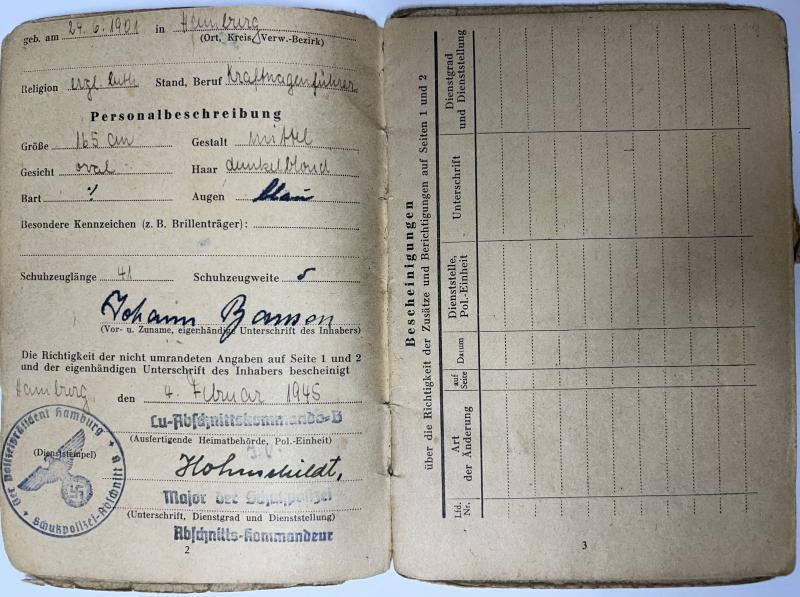 geb. am 24. 6. 1901 in Hamburg
(Ort, Kreis, Verw.-Bezirk)
Religion Stand, Beruf Kraftwagenführer
Personalbeschreibung
Größe 165 cm Gestalt mittel
Gesicht oval Haar dunkelblond
Bart % Augen blau
Besondere Kennzeichen (z. B. Brillenträger):
Schuhzeuglänge 41 Schuhzeugweite 5
Johann
(Vor- u. Zuname, eigenhändige Unterschrift des Inhabers)
Die Richtigkeit der nicht umrandeten Angaben auf Seite 1 und 2
und der eigenhändigen Unterschrift des Inhabers bescheinigt
Hamburg, den 4. Februar 1945
Lu-Abschnittskommando-B
(Ausfertigende Heimatbehörde, Pol.-Einheit)
J.V.
(Dienststempel)
Der Polizeipräsident Hamburg
Schutzpolizei-Abschnitt
Major der Schutzpolizei
(Unterschrift, Dienstgrad und Dienststellung)
Abschnitts-Kommandeur
2
Bescheinigungen
über die Richtigkeit der Zusätze und Berichtigungen auf Seiten 1 und 2
Lfd.
Nr.
Art
der Änderung
auf
Seite
Datum
Dienststelle,
Pol.-Einheit
Unterschrift
Dienstgrad
und Dienststellung
3